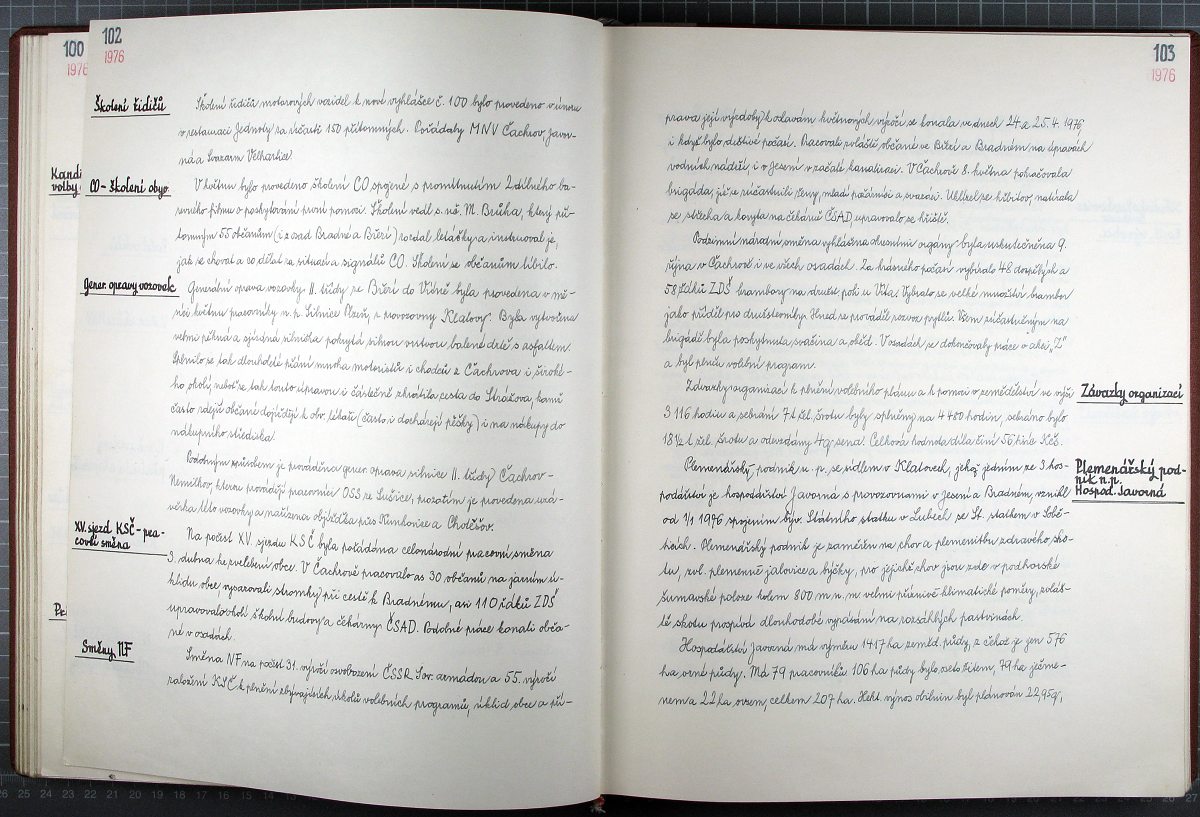 100
1976
Kandi
volby
Pr
102
1976
Školení řidičů
Školení řidičů motorových vozidel k nové vyhlášce č. 100 bylo provedeno v únoru
v restauraci Jednoty za účasti 150 přítomných. Pořádaly MNV Čachrov, Javor-
ná a Svazarm Velhartice
CO - školení obyv.
V květnu bylo provedeno školení CO spojené s promítnutím 2 dílného ba-
revného filmu o poskytování první pomoci. Školení vedl s. M. Brůha, který pří-
tomným 55 občanům (i z osad Bradné a Bížří) rozdal letáčky a instruoval je,
jak se chovat a co dělat za situací a signálů CO. Školení se občanům líbilo.
Gener. opravy vozovek
Generální oprava vozovky II. třídy ze Bížří do Vidně byla provedena v mě-
síci květnu pracovníky n. p. Silnice Plzeň, z provozovny Klatovy. Byla vytvořena
velmi pěkná a sjízdná silnička pokrytá silnou vrstvou balené drtě s asfaltem.
Splnilo se tak dlouholeté přání mnoha motoristů i chodců z Čachrova i široké-
ho okolí, neboť se tak touto úpravou i částečně zkrátila cesta do Strážova, kamž
často zdejší občané dojíždějí k obv. lékaři (často i docházejí pěšky) i na nákupy do
nákupního střediska.
Podobným způsobem je prováděna gener. oprava silnice II. třídy Čachrov -
Nemilkov, kterou provádějí pracovníci OSS ze Sušice, prozatím je provedena uzá-
věrka této vozovky a nařízena objížďka přes Kunkovice a Chotěšov.
XV. sjezd KSČ - pra-
covní směna
Na počest XV. sjezdu KSČ byla pořádána celonárodní pracovní směna
3. dubna ke zvelebení obce. V Čachrově pracovalo as 30 občanů na jarním ú-
klidu obce, vysazovali stromky při cestě k Bradnému, asi 110 žáků ZDŠ
upravovalo okolí školní budovy a čekárny ČSAD. Podobné práce konali obča-
né v osadách.
Směny NF
Směna NF na počest 31. výročí osvobození ČSSR Sov. armádou a 55. výročí
založení KSČ k plnění zbývajících úkolů volebních programů, úklid obce a pří-
103
1976
prava její výzdoby k oslavám květnových výročí se konala ve dnech 24. a 25. 4. 1976,
i když bylo deštivé počasí. Pracovali zvláště občané ve Bížří a Bradném na úpravách
vodních nádrží, i v Jesení v začaté kanalizaci. V Čachrově 8. května pokračovala
brigáda, jíž se zúčastnili ženy, mladí požárníci a svazáci. Uklízel se hřbitov, natírala
se střecha a koryta na čekárně ČSAD, upravovalo se hřiště.
Podzimní národní směna vyhlášena okresními orgány byla uskutečněna 9.
října v Čachrově i ve všech osadách. Za krásného počasí vybíralo 48 dospělých a
58 žáků ZDŠ brambory na družst. poli u Víta. Vybralo se velké množství brambor
jako příděl pro družstevníky. Hned se prováděl rozvoz pytlů. Všem zúčastněným na
brigádě byla poskytnuta svačina a oběd. V osadách se dokončovaly práce v akci „Z"
a byl plněn volební program.
Závazky organizací
Závazky organizací k plnění volebního plánu a k pomoci v zemědělství ve výši
3 116 hodin a sebrání 7 t žel. šrotu byly splněny na 4 480 hodin, sebráno bylo
18 1/2 t žel. šrotu a odevzdány 4 q sena. Celková hodnota díla činí 56 tisíc Kčs.
Plemenářský pod-
nik n.p.
Hospod. Javorná
Plemenářský podnik n. p., se sídlem v Klatovech, jehož jedním ze 3 hos-
podářství je hospodářství Javorná s provozovnami v Jesení a Bradném, vznikl
od 1/1 1976 spojením býv. Státního statku v Lubech se St. statkem v Sobě-
ticích. Plemenářský podnik je zaměřen na chov a plemenitbu zdravého sko-
tu, zvl. plemenné jalovice a býčky, pro jejichž chov jsou zde v podhorské
šumavské poloze kolem 800 m n. m. velmi příznivé klimatické poměry, zvláš-
tě skotu prospívá dlouhodobé vypásání na rozsáhlých pastvinách.
Hospodářství Javorná má výměru 1417 ha zeměd. půdy, z čehož je jen 576
ha orné půdy. Má 79 pracovníků. 106 ha půdy bylo zaseto žitem, 79 ha ječme-
nem a 22 ha ovsem, celkem 207 ha. Hekt. výnos obilnin byl plánován 22,95 q,